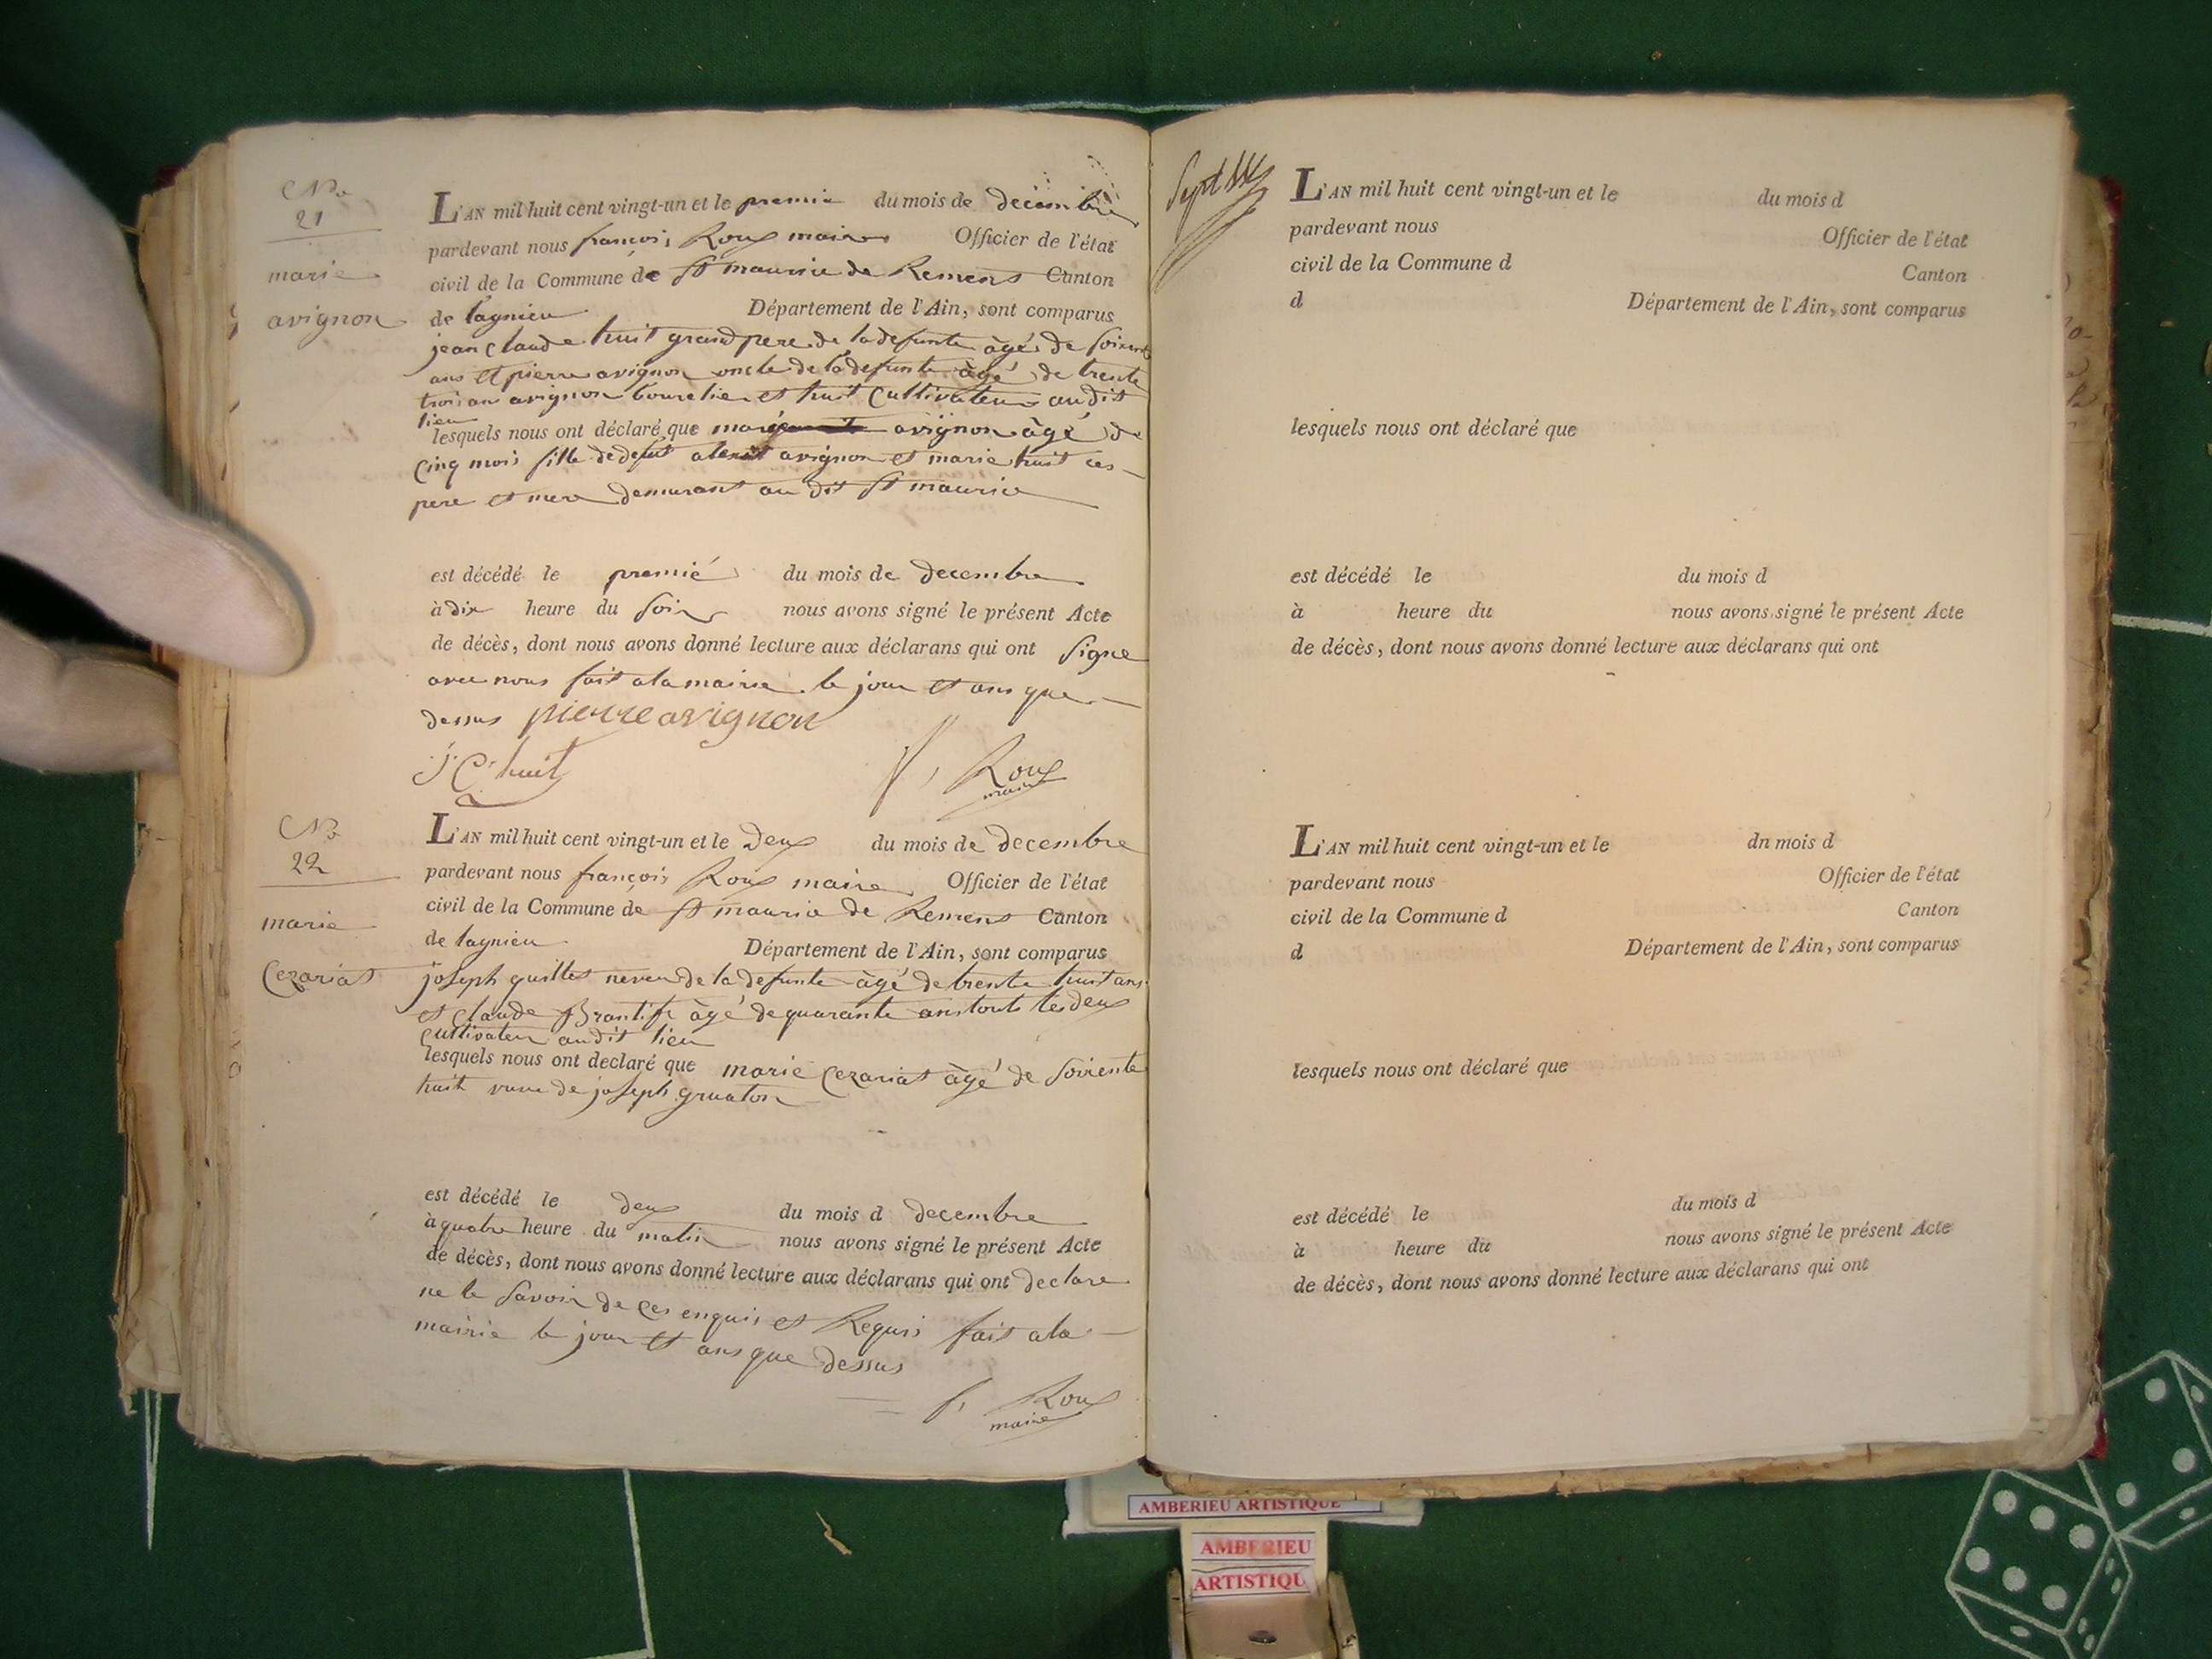 No
21
marie
avignon
L'AN mil huit cent vingt-un et le premie du mois de decembre
pardevant nous françois Roux maire Officier de l'état
civil de la Commune de St maurice de Remens Canton
de lagnieu Département de l'Ain, sont comparus
jean claude huit grand pere de la defunte àgé de soixente
ans et pierre avignon oncle de la defunte àgé de trente
trois ans avignon bourelier et huit cultivateur au dit
lieu
lesquels nous ont déclaré que marie avignon àgé de
cinq mois fille de defunt avignon et marie huit ces
pere et mere demurant au dit St maurice
est décédé le premié du mois de decembre
à dix heure du soir nous avons signé le présent Acte
de décès, dont nous avons donné lecture aux déclarans qui ont signe
avec nous fait a la mairie le jour et ans que
dessus pierre avignon
j C huit
f, Roux
maire
No
22
marie
Cezariat
L'AN mil huit cent vingt-un et le deux du mois de decembre
pardevant nous françois Roux maire Officier de l'état
civil de la Commune de St maurice de Remens Canton
de lagnieu Département de l'Ain, sont comparus
joseph quillet neveu de la defunte àgé de trente huit ans
et claude àgé de quarante ans touts les deux
cultivateur au dit lieu
lesquels nous ont declaré que marie Cezariat àgé de soixente
huit veuve de joseph gruaton
est décédé le deux du mois d decembre
à quatre heure du matin nous avons signé le présent Acte
de décès, dont nous avons donné lecture aux déclarans qui ont declare
ne le savoir de ces enquis et Requis fait a la
mairie le jour et ans que dessus
f, Roux
maire
L'AN mil huit cent vingt-un et le du mois d
pardevant nous Officier de l'état
civil de la Commune d Canton
d Département de l'Ain, sont comparus
lesquels nous ont déclaré que
est décédé le du mois d
à heure du nous avons signé le présent Acte
de décès, dont nous avons donné lecture aux déclarans qui ont
L'AN mil huit cent vingt-un et le dn mois d
pardevant nous Officier de l'état
civil de la Commune d Canton
d Département de l'Ain, sont comparus
lesquels nous ont déclaré que
est décédé le du mois d
à heure du nous avons signé le présent Acte
de décès, dont nous avons donné lecture aux déclarans qui ont
AMBERIEU ARTISTIQUE
AMBERIEU
ARTISTIQU